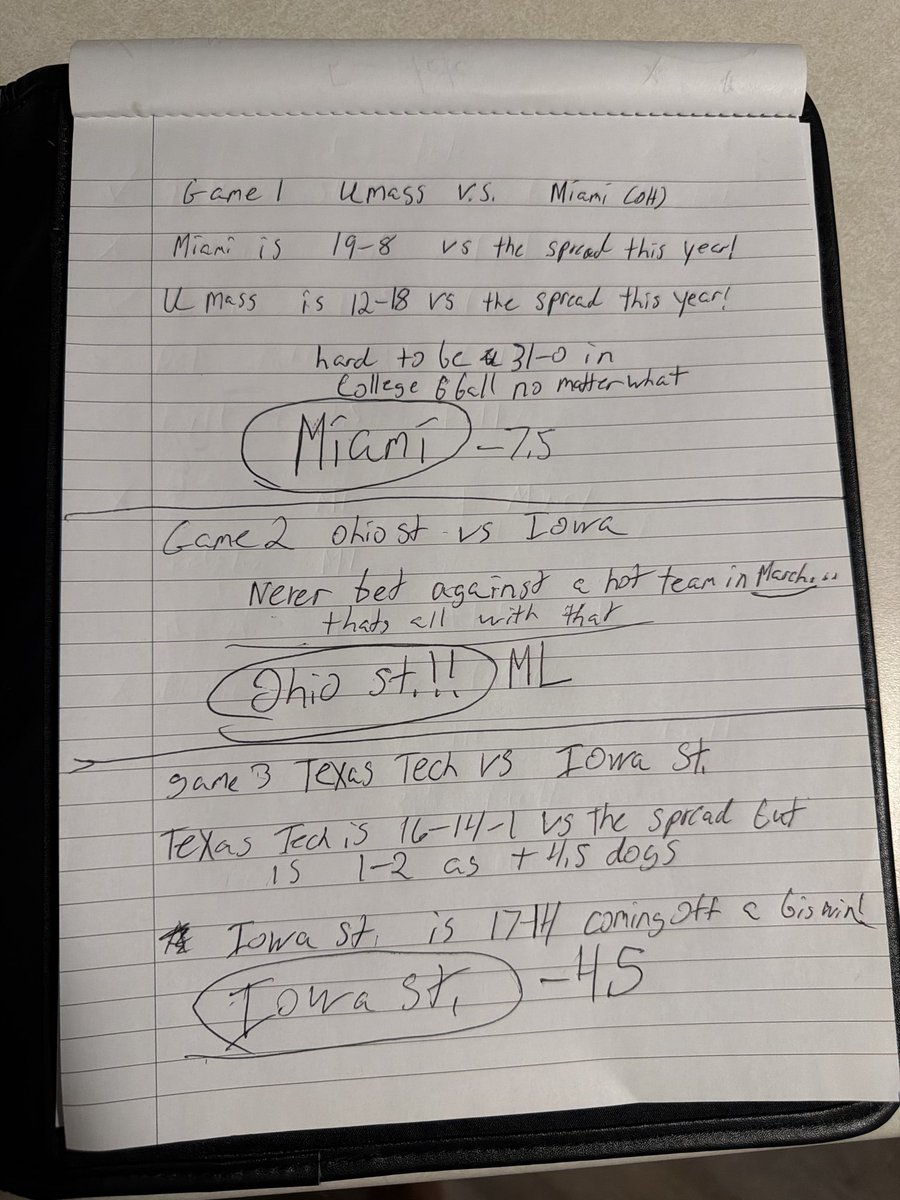 Game 1 Umass V.S. Miami (OH)
Miami is 19-8 vs the spread this year!
U mass is 12-18 vs the spread this year!
hard to be 31-0 in
College bball no matter what
Miami -7.5
Game 2 Ohio st vs Iowa
Never bet against a hot team in March...
thats all with that
Ohio St.!! ML
game 3 Texas Tech vs Iowa St.
Texas Tech is 16-14-1 vs the spread but
is 1-2 as +4.5 dogs
Iowa St. is 17-14 coming off a big win!
Iowa St. -4.5